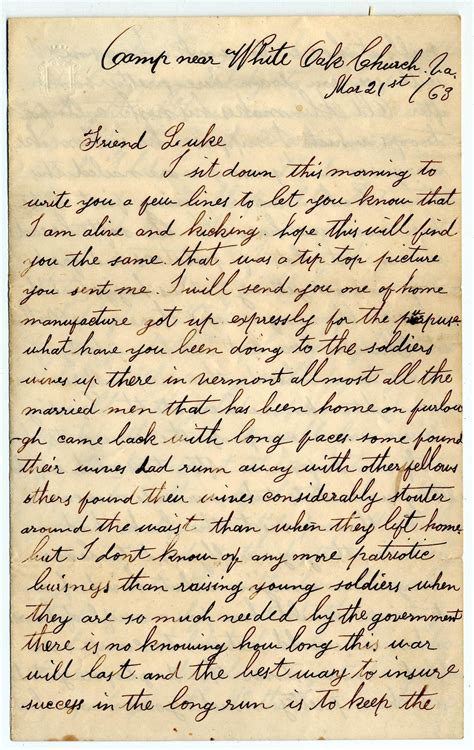 Camp near White Oak Church Va.
Mar 21st /63
Friend Luke
I sit down this morning to
write you a few lines to let you know that
I am alive and kicking. hope this will find
you the same. that was a tip top picture
you sent me. I will send you one of home
manufacture got up expressly for the purpuse.
what have you been doing to the soldiers
wives up there in vermont allmost all the
married men that has been home on furlow
gh came back with long faces. some found
their wives had runn away with other fellows
others found their wives considerably stouter
around the waist than when they left home.
but I dont know of any more patriotic
buisness than raising young soldiers when
they are so much needed by the government
there is no knowing how long this war
will last. and the best way to insure
success in the long run is to keep the